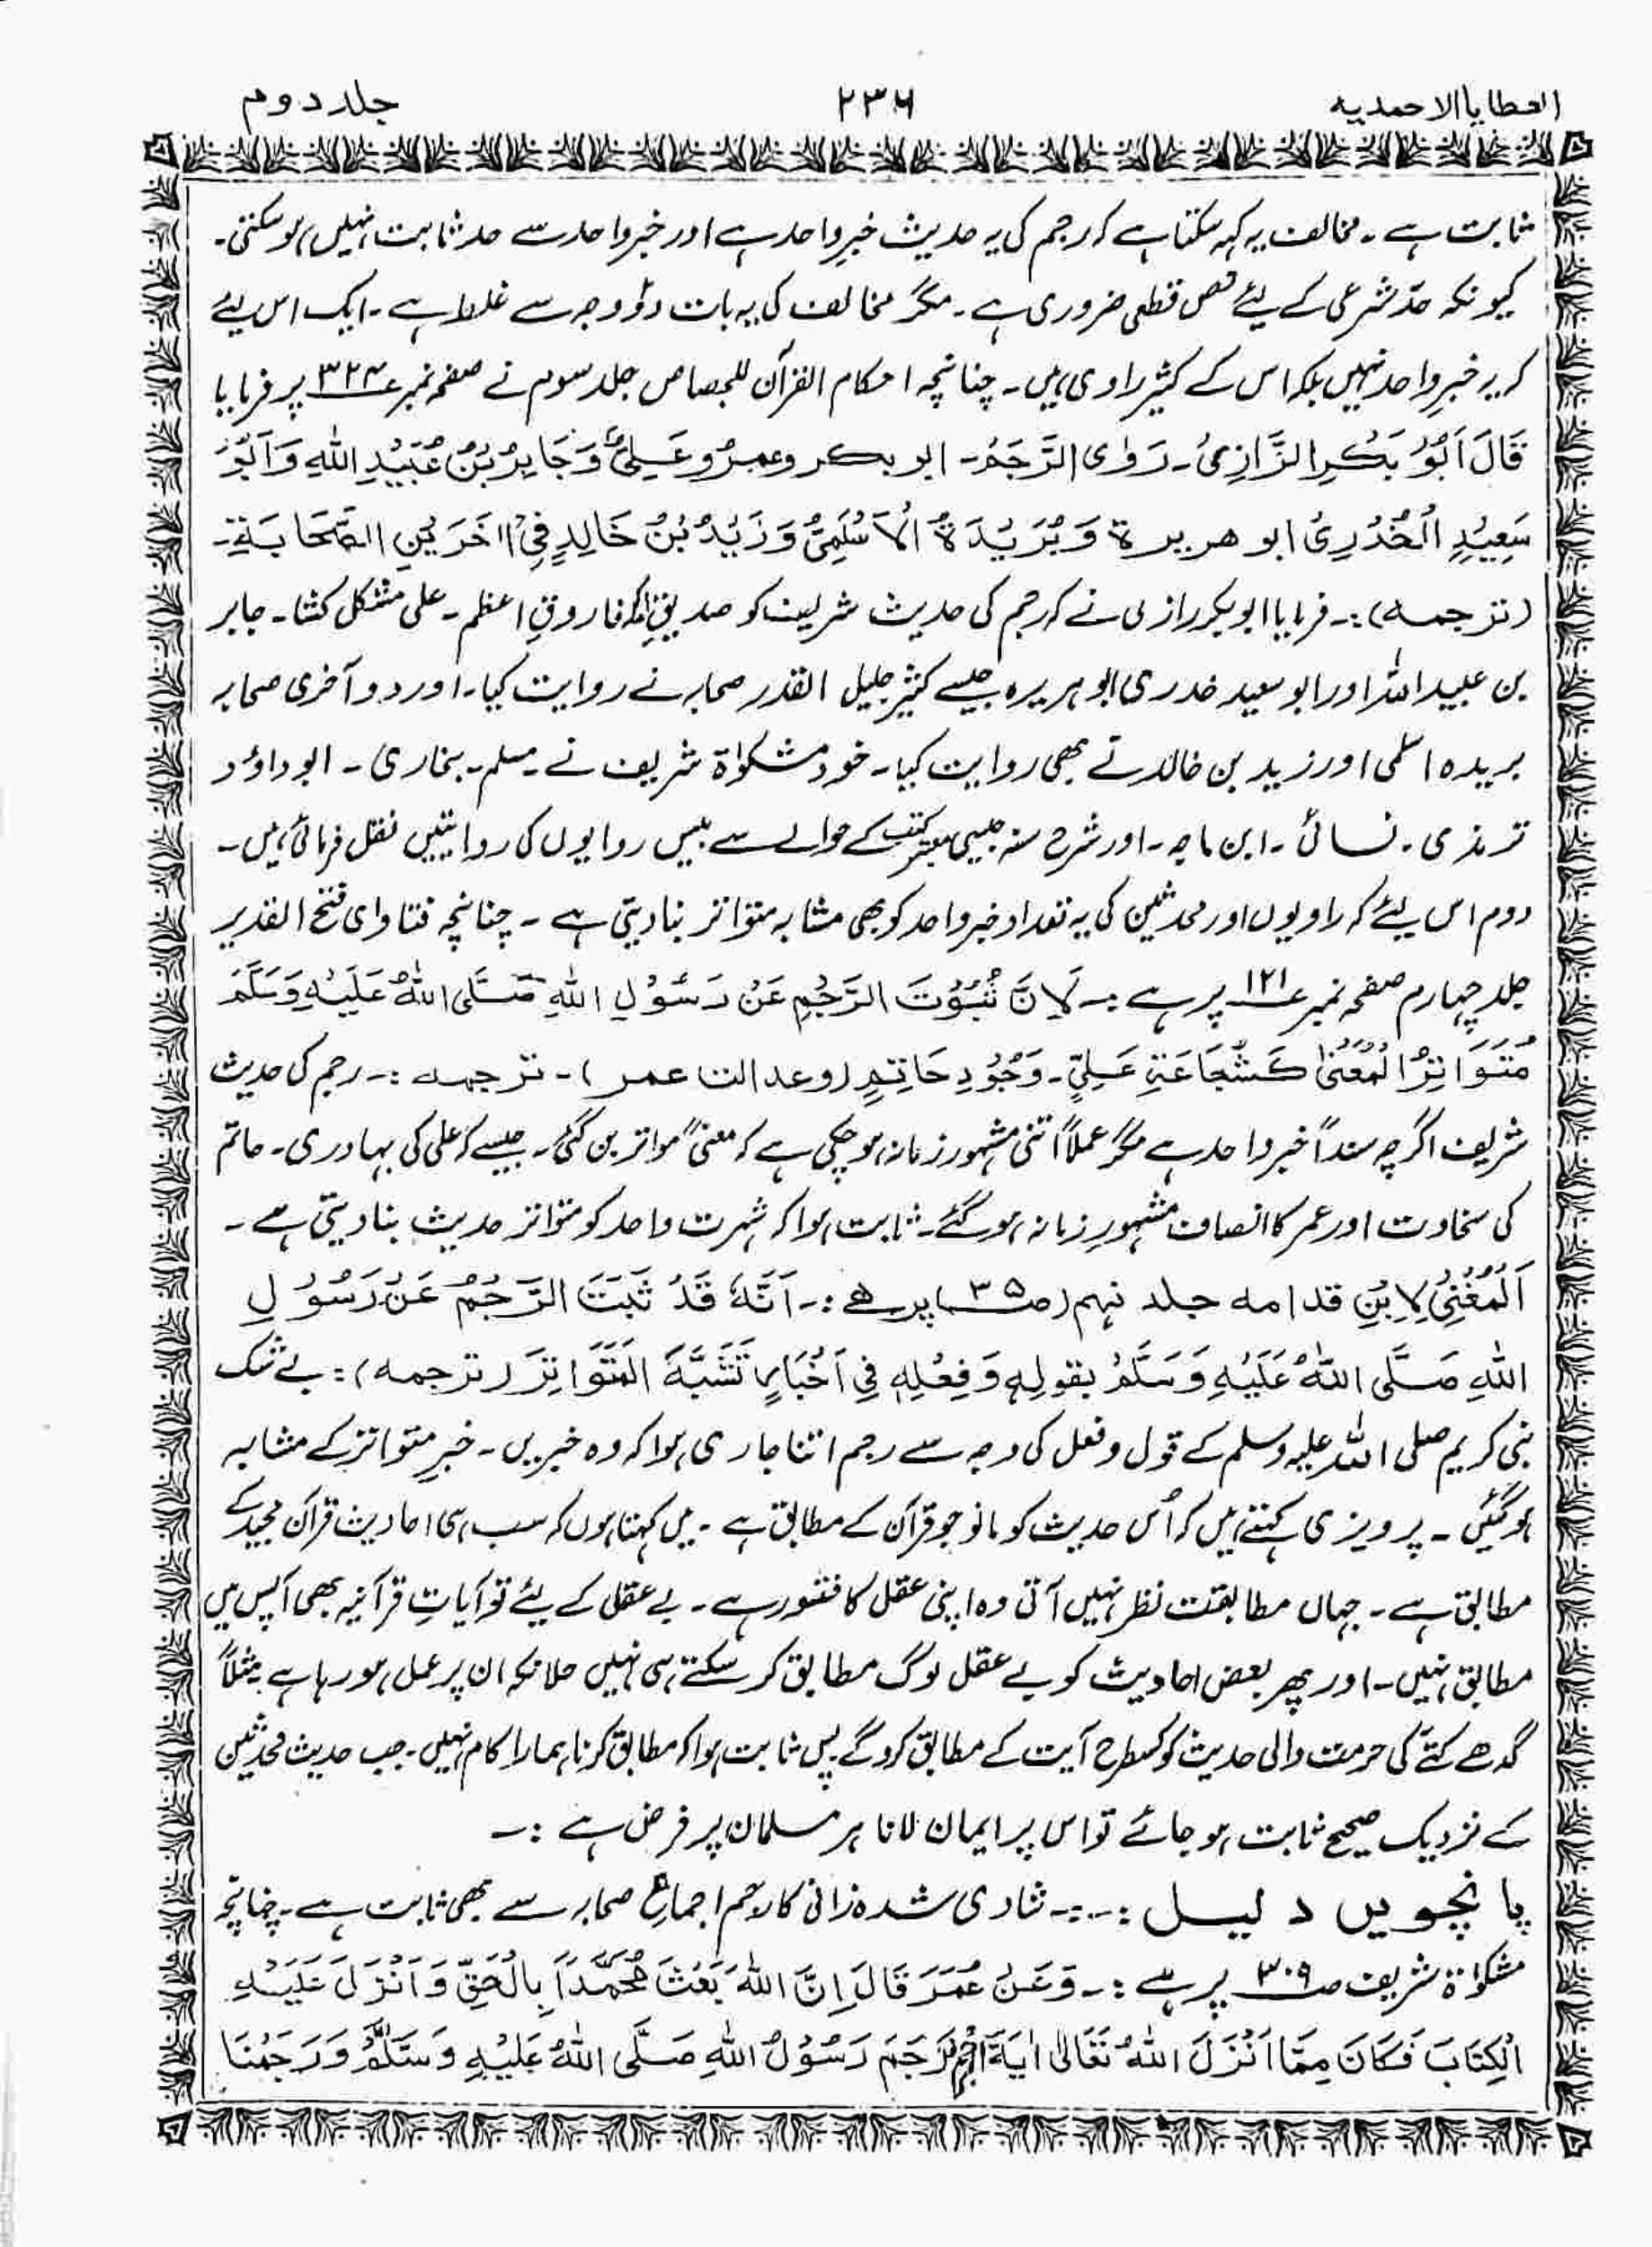 العطایا الاحمدیہ ۲۳۶ جلد دوم
ثابت ہے۔ مخالف یہ کہہ سکتا ہے کہ رجم کی یہ حدیث خبرِ واحد ہے اور خبر واحد سے حد ثابت نہیں ہو سکتی۔
کیونکہ حدِّ شرعی کے لیئے نص قطعی ضروری ہے۔ مگر مخالف کی یہ بات دوٗ وجہ سے غلط ہے۔ ایک اس لیئے
کہ یہ خبرِ واحد نہیں بلکہ اس کے کثیر راوی ہیں۔ چنانچہ احکام القرآن للجصاص جلد سوم نے صفحہ نمبر ۳۲۴ پر فرمایا
قَالَ اَبُوْ بَكْرِ الرَّازِیُّ۔ رَوٰی الرَّجَمُ۔ ابو بکر وعمرُ و عَلِیٌّ وَجَابِرُ بْنُ عُبَیْدِ اللهِ وَ اَبُوْ
سَعِیْدِ الْخُدْرِیُ ابو ھریرۃ وَ بُرَیْدَۃُ الْاَسْلَمِیُّ وَ زَیْدُ بْنُ خَالِدٍ فِیْ اٰخَرَیْنِ الصَّحَابَۃِ۔
(ترجمہ):۔ فرمایا ابو بکر رازی نے کہ رجم کی حدیث شریف کو صدیقِ اکبر فاروقِ اعظم۔ علی مشکل کشا۔ جابر
بن عبید اللہ اور ابو سعید خدری ابو ہریرہ جیسے کثیر جلیل القدر صحابہ نے روایت کیا۔ اور دو آخری صحابہ
بریدہ اسلمی اور زید بن خالد نے بھی روایت کیا۔ خود مشکوٰۃ شریف نے۔ مسلم۔ بخاری۔ ابو داؤد
ترمذی۔ نسائی۔ ابن ماجہ۔ اور شرح سنہ جیسی معتبر کتب کے حوالے سے بیس راویوں کی روایتیں نقل فرمائی ہیں۔
دوم اس لیئے کہ راویوں اور محدثین کی یہ تعداد خبر واحد کو بھی مشابہ متواتر بنا دیتی ہے۔ چنانچہ فتاوای فتح القدیر
جلد چہارم صفحہ نمبر ۱۲۱ پر ہے:۔ لَاِنَّ ثُبُوْتَ الرَّجْمِ عَنْ رَسُوْلِ اللهِ صَلَّی اللهُ عَلَیْہِ وَسَلَّمَ
مُتَوَاتِرُ الْمَعْنٰی کَشُجَاعَۃِ عَلِیٍّ۔ وَجُوْدِ حَاتِمٍ (وعدالت عمر)۔ ترجمہ:۔ رجم کی حدیث
شریف اگرچہ سنداً خبر واحد ہے مگر عملاً اتنی مشہور زمانہ ہو چکی ہے کہ معنیً مواتر بن گئی۔ جیسے کہ علی کی بہادری۔ حاتم
کی سخاوت اور عمر کا انصاف مشہورِ زمانہ ہو گئے۔ ثابت ہوا کہ شہرت واحد کو متواتر حدیث بنا دیتی ہے۔
اَلْمُغْنِیُ لِاِبْنِ قدامہ جلد نہم (صـ ۳۵) پر ہے:۔ اَنَّہٗ قَدْ ثَبَتَ الرَّجْمُ عَنْ رَسُوْلِ
اللهِ صَلَّی اللهُ عَلَیْہِ وَسَلَّمْ بِقولِہٖ وَ فِعْلِہٖ فِی اَخْبَارٍ تَشَبَّہَ الْمَتَوَاتِرَ (ترجمہ): بے شک
نبی کریم صلی اللہ علیہ وسلم کے قول و فعل کی وجہ سے رجم اتنا جاری ہوا کہ وہ خبریں۔ خبرِ متواتر کے مشابہ
ہو گئیں۔ پرویزی کہتے ہیں کہ اُس حدیث کو مانو جو قرآن کے مطابق ہے۔ میں کہتا ہوں کہ سب ہی احادیث قرآن مجید کے
مطابق ہے۔ جہاں مطابقت نظر نہیں آتی وہ اپنی عقل کا فتور ہے۔ بے عقل کے لیئے تو آیاتِ قرآنیہ بھی آپس میں
مطابق نہیں۔ اور پھر بعض احادیث کو بے عقل لوگ مطابق کر سکتے ہی نہیں حلانکہ ان پر عمل ہو رہا ہے مثلاً
گدھے کتّے کی حرمت والی حدیث کو کسطرح آیت کے مطابق کرو گے پس ثابت ہوا کہ مطابق کرنا ہمارا کام نہیں۔ جب حدیث محدثین
کے نزدیک صحیح ثابت ہو جائے تو اس پر ایمان لانا ہر مسلمان پر فرض ہے:۔
پانچویں دلیل:۔۔:۔ شادی شدہ زانی کا رجم اجماعِ صحابہ سے بھی ثابت ہے۔ چنانچہ
مشکوٰۃ شریف صـ ۳۰۹ پر ہے:۔ وَعَنْ عُمَرَ قَالَ اِنَّ اللهَ بَعَثَ مُحَمَّداً بِالْحَقِّ وَ اَنْزَلَ عَلَیْہِ
الْکِتَابَ فَکَانَ مِمَّا اَنْزَلَ اللهُ تَعَالٰی اٰیَۃَ الرَّجْمِ رَجَمَ رَسُوْلُ اللهِ صَلَّی اللهُ عَلَیْہِ وَسَلَّمْ وَرَجَمْنَا